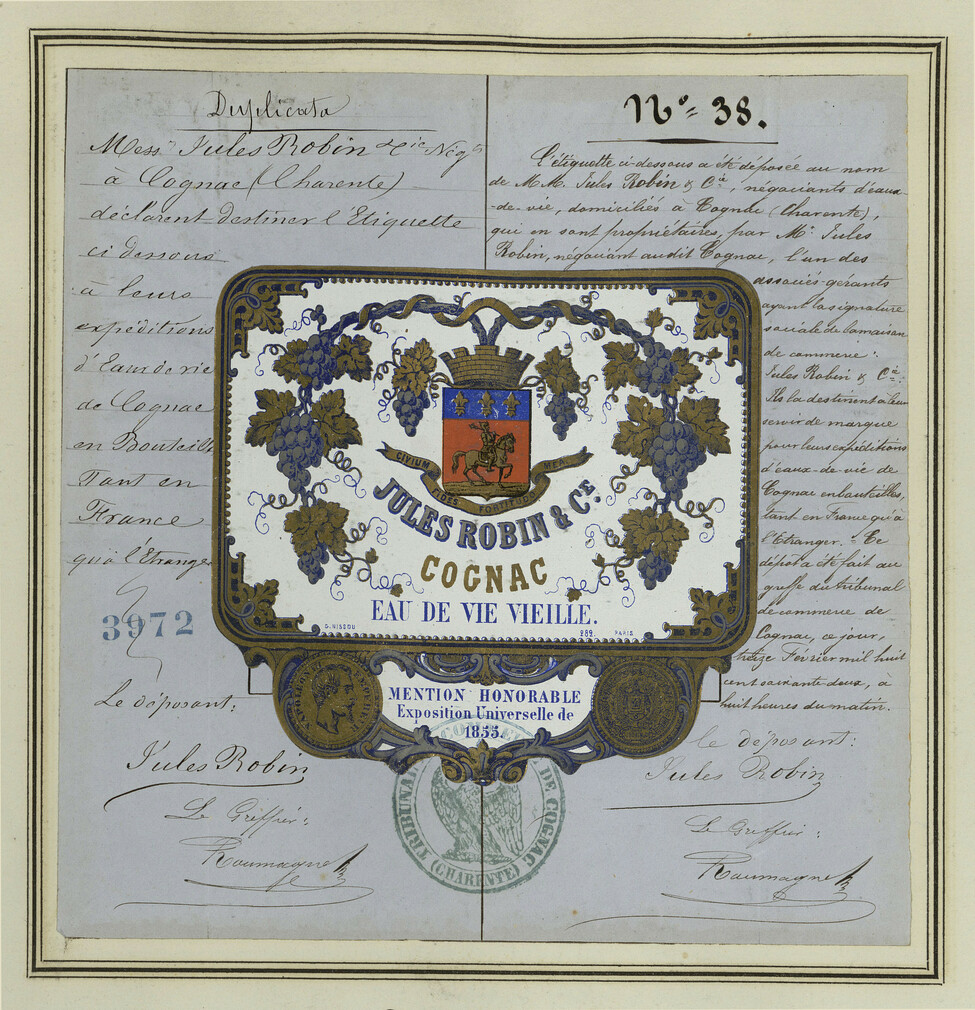 Duplicata
Mess.rs Jules Robin & Cie Nég.ts
à Cognac (Charente)
déclarent destiner l'Etiquette
ci dessous
à leurs
expéditions
d'Eaux de vie
de Cognac
en Bouteilles
Tant en
France
qu'à l'Etranger
3972
Le déposant:
Jules Robin
Le Greffier:
Roumagne
N° 38.
L'étiquette ci-dessous a été déposée au nom
de M.M. Jules Robin & Cie, négociants d'eaux-
-de-vie, domiciliés à Cognac (Charente),
qui en sont propriétaires, par Mr. Jules
Robin, négociant audit Cognac, l'un des
associés-gérants
ayant la signature
sociale de la maison
de commerce:
Jules Robin & Cie.
Ils la destinent à leur
servir de marque
pour leurs expéditions
d'eaux-de-vie de
Cognac en bouteilles,
tant en France qu'à
l'Etranger. - Ce
dépôt a été fait au
greffe du tribunal
de commerce de
Cognac, ce jour,
treize Février mil huit
cent soixante deux, à
huit heures du matin.
le déposant:
Jules Robin
Le Greffier:
Roumagne
CIVIUM MEA
FIDES FORTITUDO
JULES ROBIN & CIE
COGNAC
EAU DE VIE VIEILLE.
289. PARIS
MENTION HONORABLE
Exposition Universelle de
1855.
NAPOLEON III EMPEREUR
TRIBUNAL DE COMMERCE DE COGNAC
(CHARENTE)